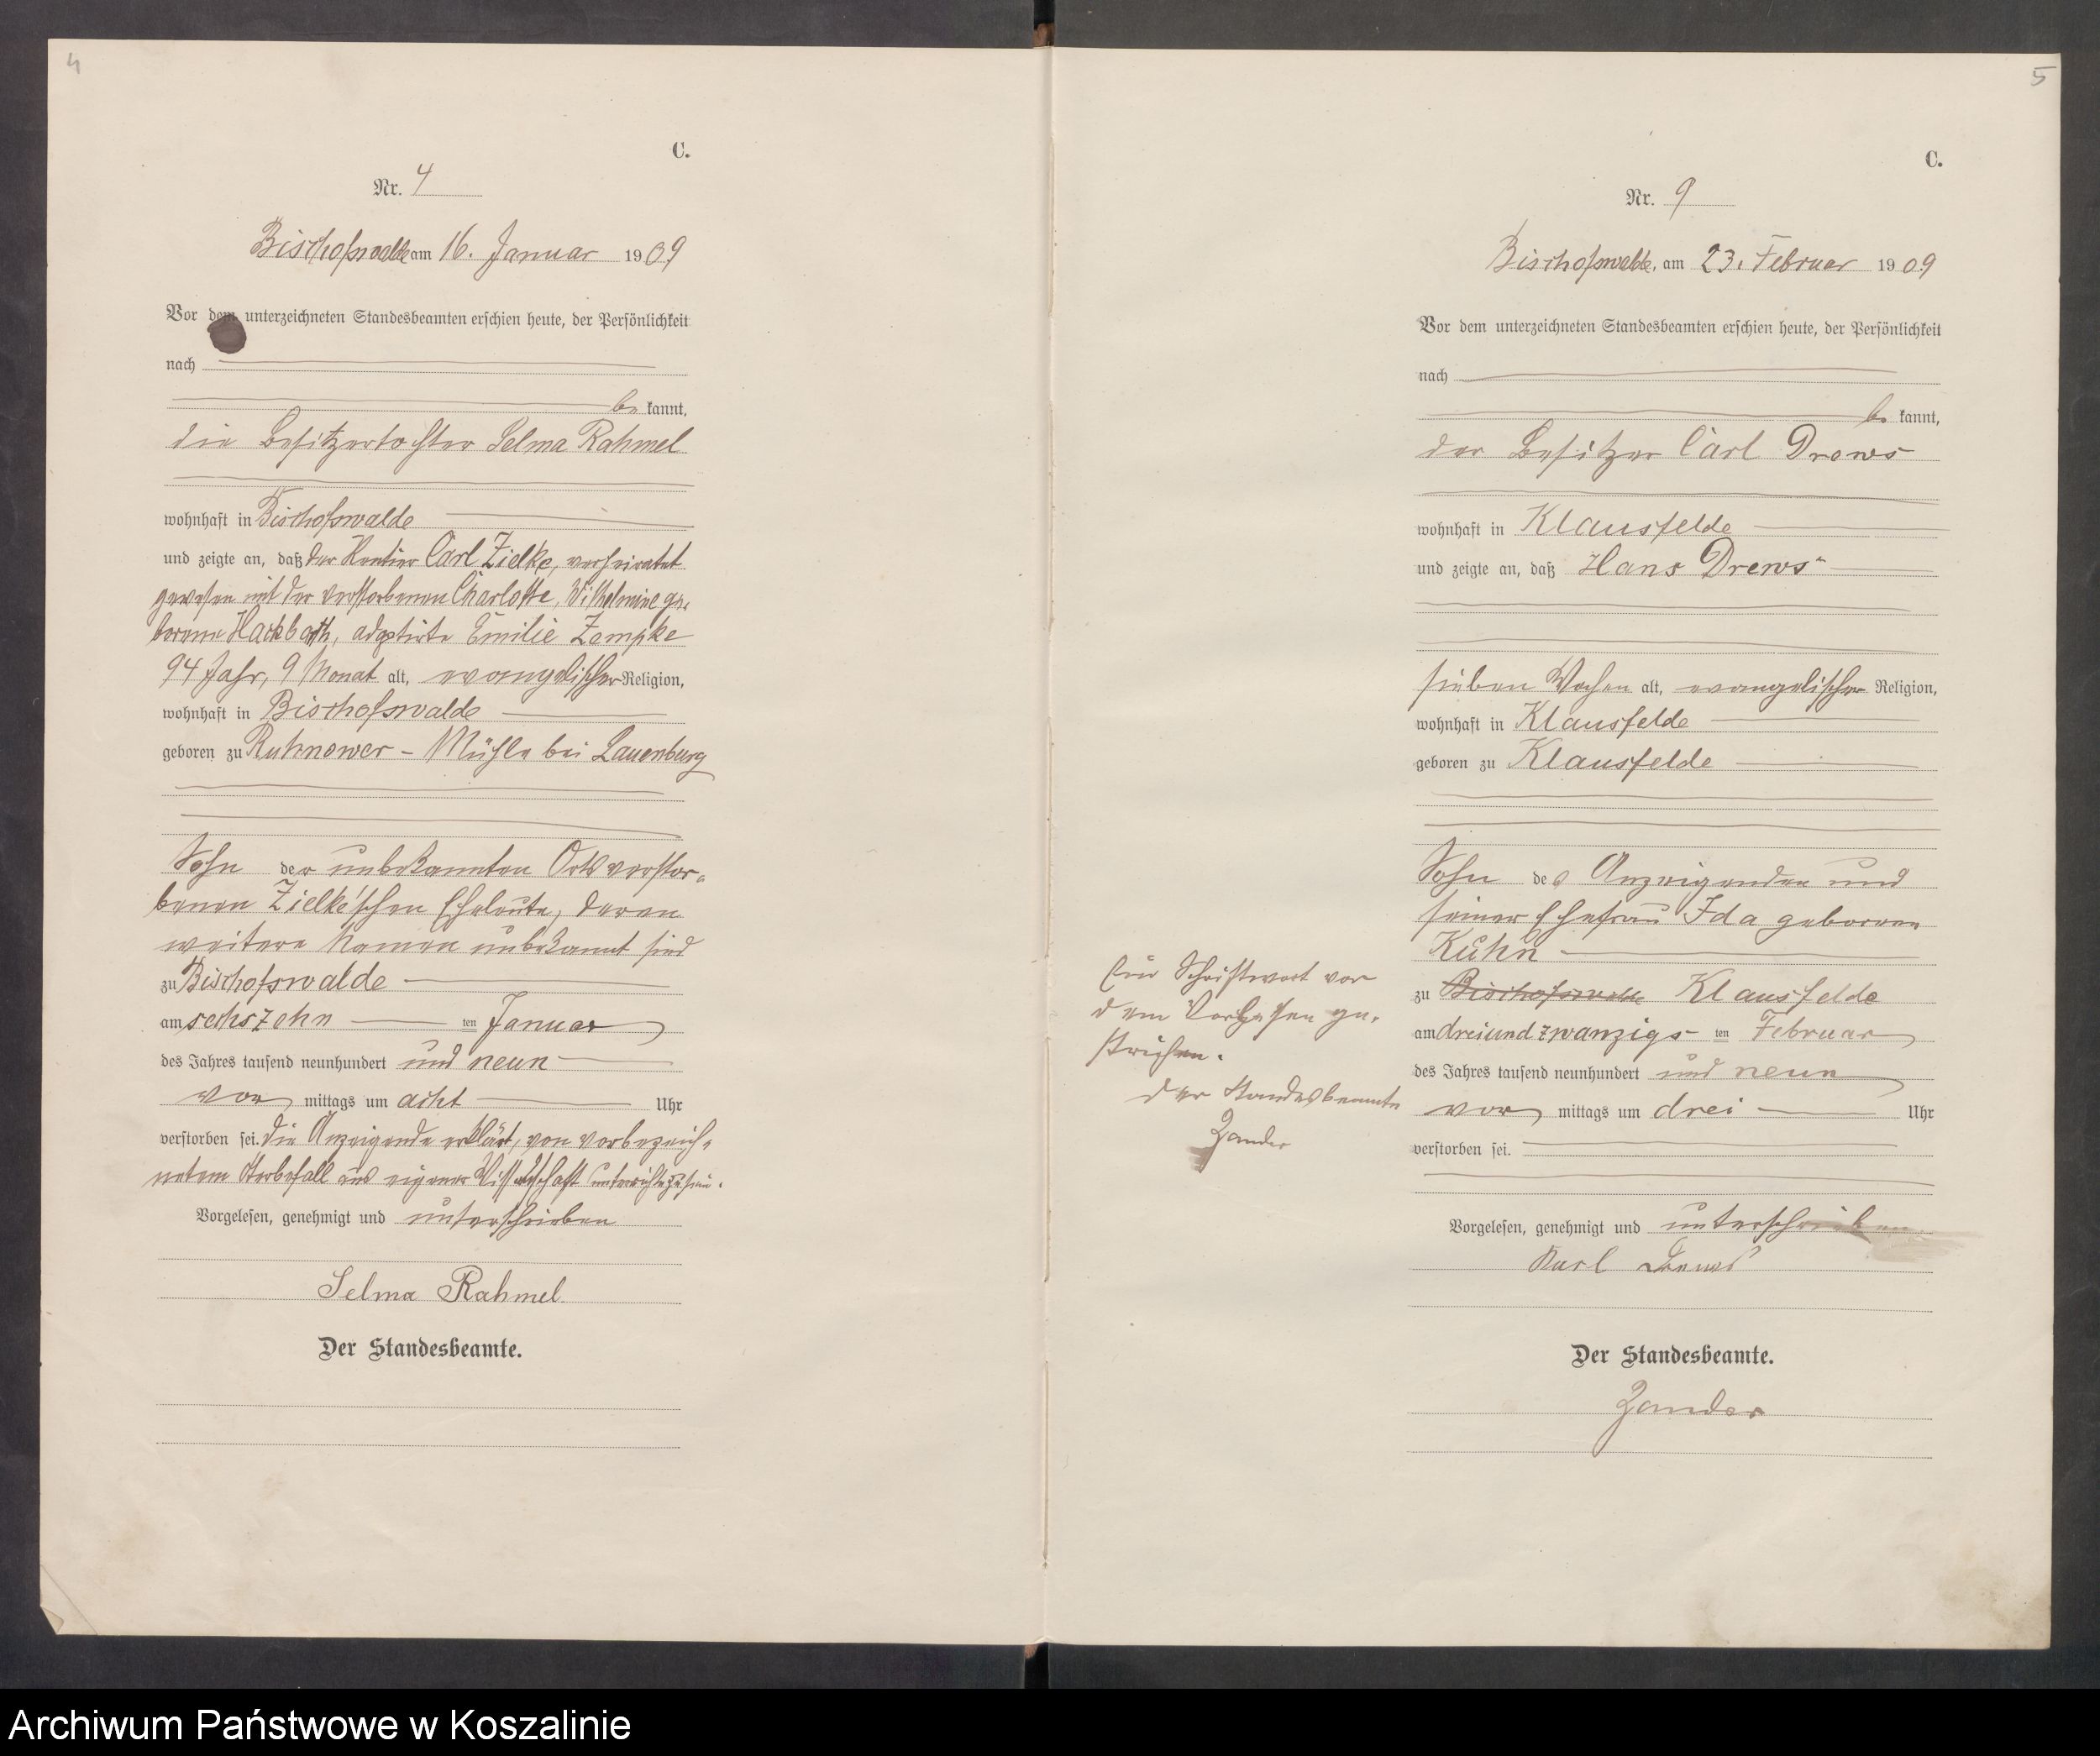 4
C.
Nr. 4
Bischofswalde am 16. Januar 1909
Vor dem unterzeichneten Standesbeamten erschien heute, der Persönlichkeit
nach
be kannt,
die Besitzertochter Selma Rahmel
wohnhaft in Bischofswalde
und zeigte an, daß der Rentier Carl Zielke, verheiratet
gewesen mit der verstorbenen Charlotte, Wilhelmine ge-
borene Hackbarth, adoptirte Emilie Zempke
94 Jahr, 9 Monat alt, evangelischer Religion,
wohnhaft in Bischofswalde
geboren zu Ruhnower - Mühle bei Lauenburg
Sohn der unbekannten Orts verstor-
benen Zielke'schen Eheleute, deren
weitere Namen unbekannt sind
zu Bischofswalde
am sechszehn ten Januar
des Jahres tausend neunhundert und neun
vor mittags um acht Uhr
verstorben sei. Die Anzeigende erklärt, von vorbezeich-
netem Sterbefall aus eigener Wissenschaft unterrichtet zu sein.
Vorgelesen, genehmigt und unterschrieben
Selma Rahmel.
Der Standesbeamte.
5
C.
Nr. 9
Bischofswalde, am 23. Februar 1909
Vor dem unterzeichneten Standesbeamten erschien heute, der Persönlichkeit
nach
be kannt,
der Besitzer Carl Drews
wohnhaft in Klausfelde
und zeigte an, daß Hans Drews
sieben Wochen alt, evangelischer Religion,
wohnhaft in Klausfelde
geboren zu Klausfelde
Sohn des Anzeigenden und
seiner Ehefrau Ida geborene
Kuhn
zu Bischofswalde Klausfelde
am dreiundzwanzigs ten Februar
des Jahres tausend neunhundert und neun
vor mittags um drei Uhr
verstorben sei.
Vorgelesen, genehmigt und unterschrieben
Karl Drews
Der Standesbeamte.
Zander
Ein Schriftwort vor
dem Vorlesen ge-
strichen.
Der Standesbeamte
Zander
Archiwum Państwowe w Koszalinie